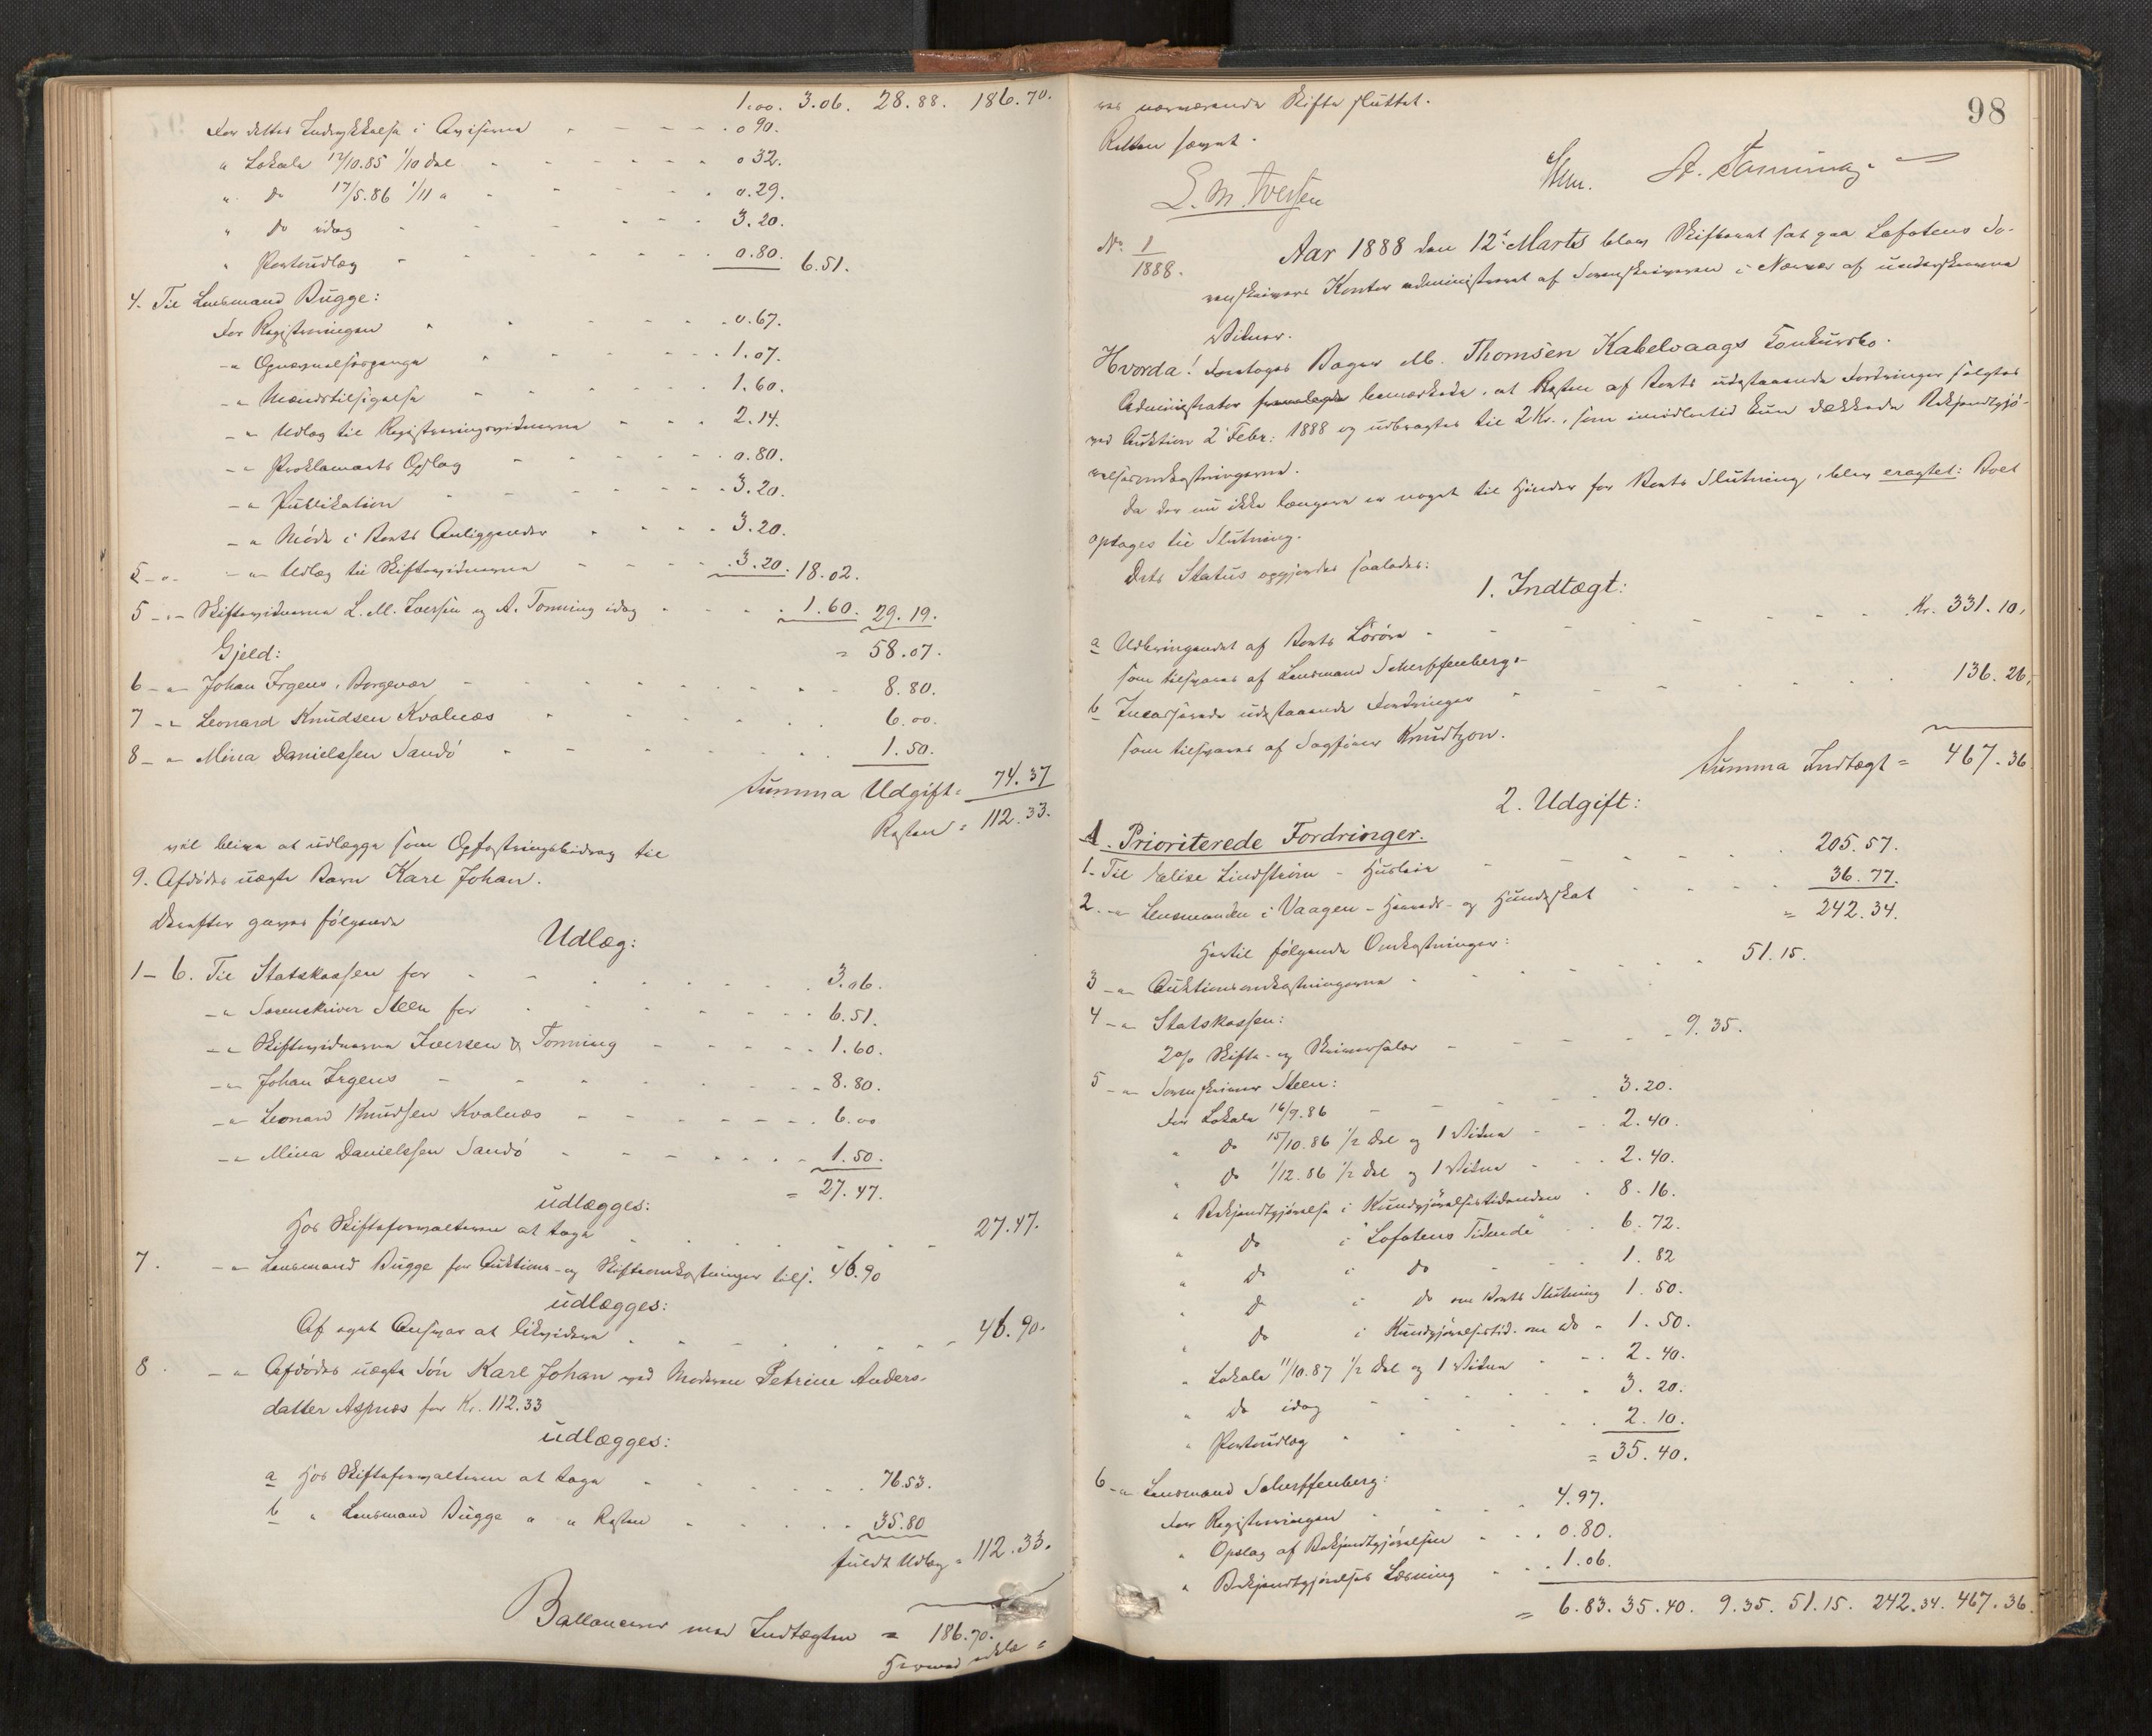 1.00. 3.06. 28.88. 186.70.
For dettes Indrykkelse i Aviserne - - - - . 0 90.
" Lokale 12/10.85 1/10 Del - - - - 0 32.
" do 17/5.86 1/11 " - - - - 0.29.
" do idag - - - - 3.20.
" Portoudlæg - - - - 0.80. 6.51.
4. Til Lensmand Bugge:
For Registreringen - - - - 0.67.
-"- Opnævnelsesgange - - - - 1.07.
-"- Mændstilsigelse - - - - 1.60.
-"- Udlæg til Registreringsvidnerne - - - 2.14.
-"- Proklamaets Opslag - - - - 0.80.
-"- Publikation - - - - 3.20.
-"- Møde i Boets Anliggender - - - - 3.20.
5 -"- -"- Udlæg til Skiftevidnerne - - - - 3.20. 18.02.
5 -"- Skiftevidnerne L. M. Iversen og A. Tonning idag - - - 1.60. 29.19.
Gjeld: = 58.07.
6 -"- Johan Irgens, Borgevær - - - - 8.80.
7 -"- Leonard Knudsen Kvalnæs - - - - 6.00.
8 -"- Mina Danielssen Sandö - - - - 1.50.
Summa Udgift = 74.37
Resten = 112.33.
vil blive at udlægge som Opfostringsbidrag til
9. Afdødes uægte Barn Karl Johan.
Derefter gjøres følgende
Udlæg:
1 - 6. Til Statskassen for - - - - 3.06.
-"- Sorenskriver Steen for - - - - 6.51.
-"- Skiftevidnerne Iversen & Tonning - - - - 1.60.
-"- Johan Irgens - - - - 8.80.
-"- Leonard Knudsen Kvalnæs - - - - 6.00
-"- Mina Danielssen Sandö - - - - 1.50.
= 27.47.
udlægges:
Hos Skifteforvalteren at tage - - - - 27.47.
7. -"- Lensmand Bugge for Auktions- og Skifteomkostninger tils. 46.90
udlægges:
Af eget Ansvar at likvidere - - - - 46.90.
8. -"- Afdødes uægte Søn Karl Johan ved Moderen Petrine Anders-
datter Aspnæs for Kr. 112.33
udlægges:
a Hos Skifteforvalteren at tage - - - - 76.53.
b " Lensmand Bugge " " Resten - - - - 35.80
fuldt Udlæg = 112.33.
Ballancerer med Indtægten = 186.70.
98
var nærværende Skifte sluttet.
Retten hævet.
Steen.
L. M. Iversen A. Tonning
No 1/1888.
Aar 1888 den 12te Marts blev Skifteret sat paa Lofotens So-
renskrivers Kontor administreret af Sorenskriveren i Nærvær af underskrevne
Vidner.
Hvorda! Foretoges Bager M. Thomsen Kabelvaags Konkursbo.
Administrator fremlagde bemærkede, at Resten af Boets udestaaende Fordringer solgtes
ved Auktion 2 Febr: 1888 og udbragtes til 2 Kr., som imidlertid kun dækkede Bekjendtgjø-
relsesomkostningerne.
Da der nu ikke længere er noget til Hinder for Boets Slutning, blev eragtet: Boet
optages til Slutning.
Dets Status opgjordes saaledes:
1. Indtægt:
a Udbringendet af Boets Løsøre - - - - Kr. 331.10.
som tilsvares af Lensmand Scherffenberg.
b Incasserede udestaaende Fordringer - - - - 136.26.
som tilsvares af Sagfører Knudtzon.
Summa Indtægt = 467.36
2. Udgift:
A. Prioriterede Fordringer.
1. Til Elise Lindstrøm - Husleie - - - - 205.57.
2. -"- Lensmanden i Vaagen - Herreds- og Hundeskat - - - - 36.77.
= 242.34.
Hertil følgende Omkostninger:
3 -"- Auktionsomkostningerne - - - - 51.15.
4 -"- Statskassen:
2% Skifte- og Skriversalær - - - - 9.35.
5 -"- Sorenskriver Steen:
For Lokale 16/9.86 - - - - 3.20.
" do 15/10.86 1/2 Del og 1 Vidne - - - 2.40.
" do 1/12.86 1/2 Del og 1 Vidne - - - 2.40.
" Bekjendtgjørelse i Kundgjørelsestidenden - 8.16.
" do i "Lofotens Tidende" - - 6.72.
" do i do - - 1.82
" do i do om Boets Slutning 1.50.
" do i Kundgjørelsestid. om do - 1.50.
" Lokale 11/10.87 1/2 Del og 1 Vidne - - - 2.40.
" do idag - - - - 3.20.
" Portoudlæg - - - - 2.10.
= 35.40.
6 -"- Lensmand Scherffenberg:
For Registreringen - - - - 4.97.
" Opslag af Bekjendtgjørelsen - - - 0.80.
" Bekjendtgjørelses Læsning - - - 1.06.
= 6.83. 35.40. 9.35. 51.15. 242.34. 467.36.